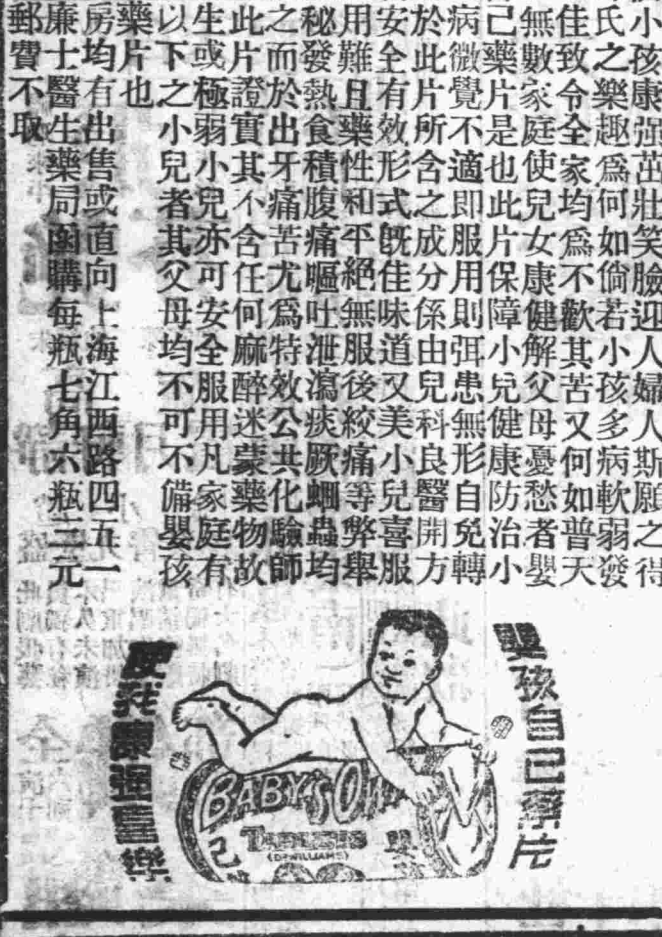 小孩康强茁壯笑臉迎人婦人斯願之得
氏之樂趣爲何如倘若小孩多病軟弱發
佳致令全家均爲不歡其苦又何如普天
無數家庭使兒女康健解父母憂愁者嬰
己藥片是也此片保障小兒健康防治小
病微覺不適即服用則弭患無形自免轉
於此片所含之成分係由兒科良醫開方
安全有效形式旣佳味道又美小兒喜服
用難且藥性和平絕無服後絞痛等弊舉
秘發熱食積腹痛嘔吐泄瀉痰厥蛔蟲均
之而於出牙痛苦尤爲特效公共化驗師
此片證實其不含任何麻醉迷蒙藥物故
生或極弱小兒亦可安全服用凡家庭有
以下之小兒者其父母均不可不備嬰孩
藥片也
房均有出售或直向上海江西路四五一
廉士醫生藥局函購每瓶七角六瓶三元
郵費不取
嬰孩自己藥片
使我康强喜樂
BABY'S OWN
TABLETS
(DR WILLIAMS)
己